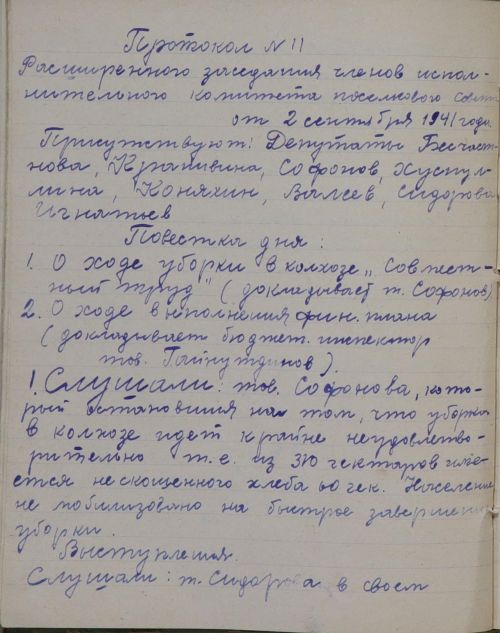 Протокол № 11
Расширенного заседания членов испол-
нительного комитета поселкового совета
от 2 сентября 1941 года.
Присутствуют: Депутаты Бесчаст-
нова, Крапивина, Софонов, Хуснул-
лина, Коняхин, Валеев, Сидорова
Игнатьев
Повестка дня:
1. О ходе уборки в колхозе „Совмест-
ный труд" (докладывает т. Софонов)
2. О ходе выполнения фин. плана
(докладывает бюджет. инспектор
тов. Гайнутдинов).
1. Слушали: тов. Софонова, кото-
рый остановился на том, что уборка
в колхозе идет крайне неудовлетво-
рительно т.е. из 310 гектаров име-
ется нескошенного хлеба 60 гек. Население
не мобилизовано на быстрое завершение
уборки.
Выступления.
Слушали: т. Сидорова в своем